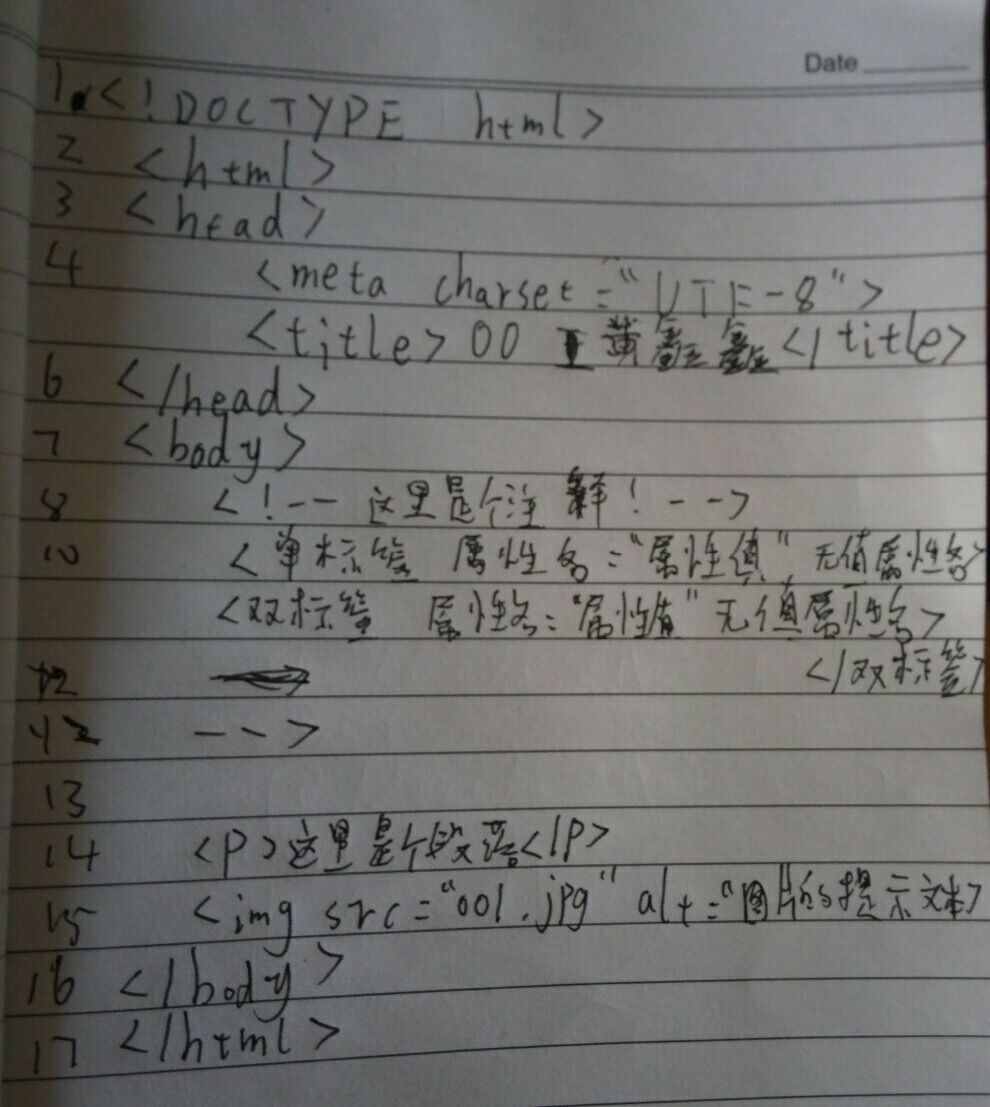 Date
1. <!DOCTYPE html>
2 <html>
3 <head>
4 <meta charset="UTF-8">
<title>00 黄鑫鑫</title>
6 </head>
7 <body>
8 <!-- 这里是个注释! -->
10 <单标签 属性名="属性值" 无值属性名>
<双标签 属性名="属性值" 无值属性名>
</双标签>
12
-->
13
14 <p>这里是个段落</p>
15 <img src="001.jpg" alt="图片的提示文本>
16 </body>
17 </html>